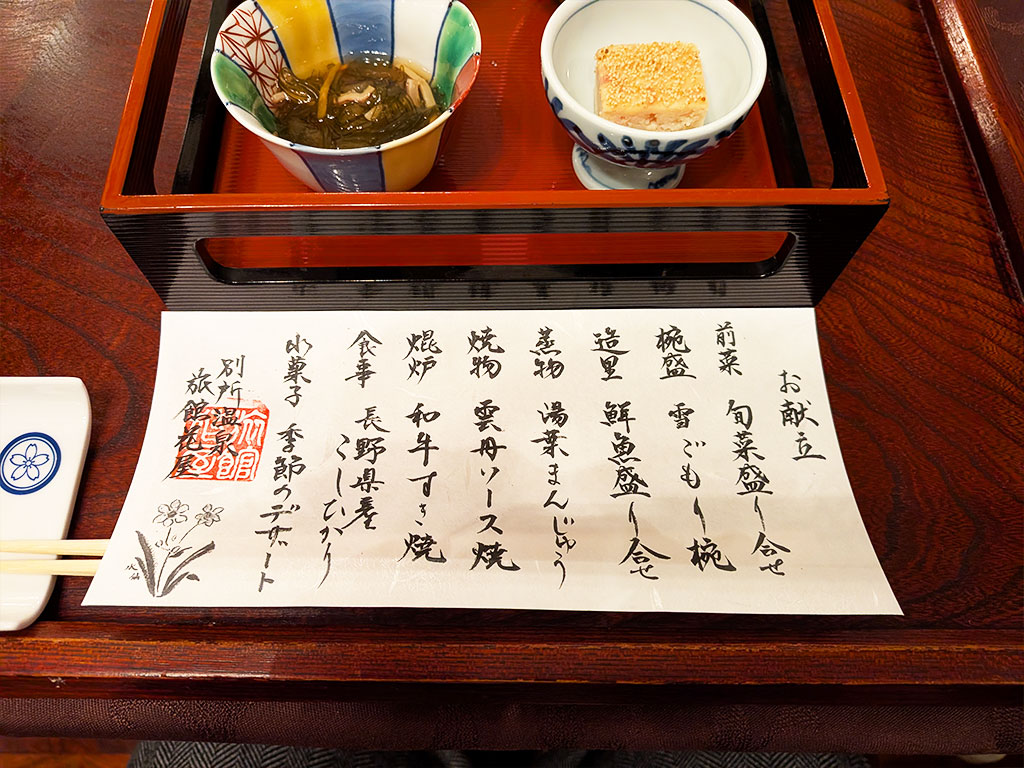 お献立
前菜 旬菜盛り合せ
椀盛 雪ごもり椀
造里 鮮魚盛り合せ
蒸物 湯葉まんじゅう
焼物 雲丹ソース焼
焜炉 和牛すき焼
食事 長野県産
こしひかり
水菓子 季節のデザート
別所温泉
旅館花屋